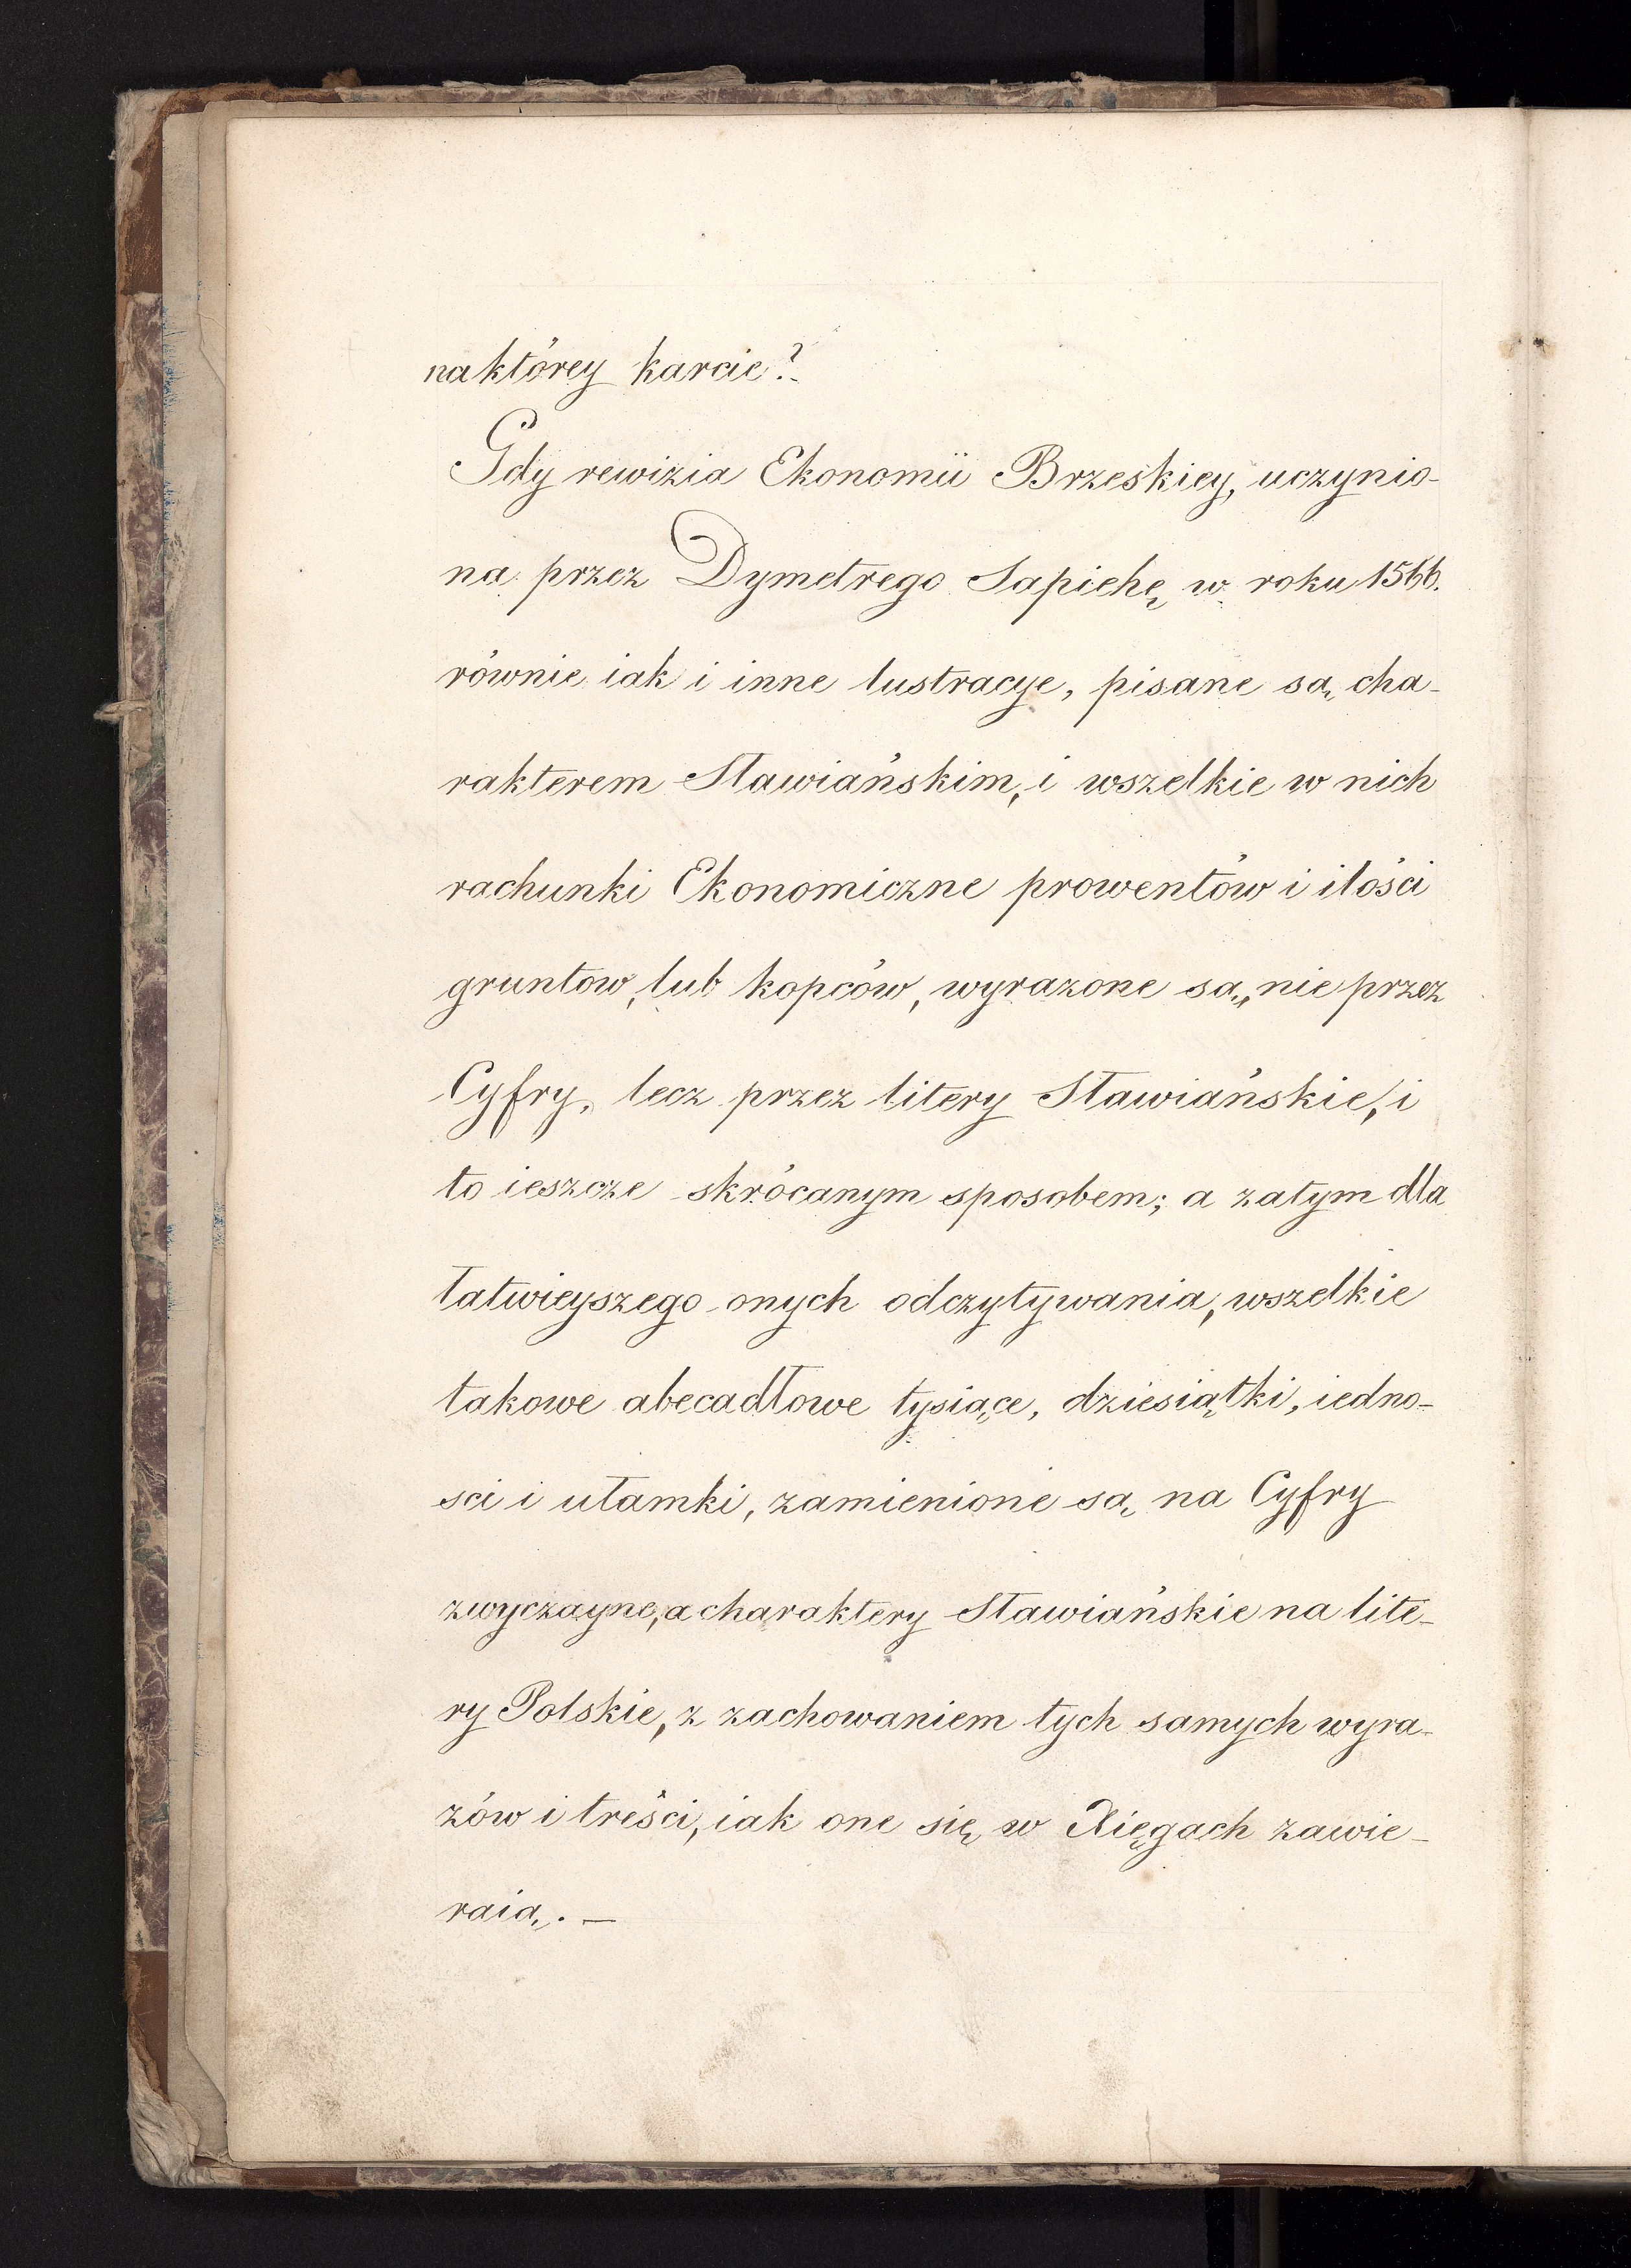 na którey karcie?
Gdy rewizia Ekonomii Brzeskiey, uczynio-
na przez Dymetrego Sapiehę w roku 1566.
równie iak i inne lustracye, pisane są cha-
rakterem Sławiańskim, i wszelkie w nich
rachunki Ekonomiczne prowentów i ilości
gruntow, lub kopców, wyrazone są, nie przez
Cyfry, lecz przez litery Sławiańskie, i
to ieszcze skrócanym sposobem; a zatym dla
łatwieyszego onych odczytywania, wszelkie
takowe abecadłowe tysiące, dziesiątki, iedno-
sci i ułamki, zamienione są na Cyfry
zwyczayne, a charaktery Sławiańskie na lite-
ry Polskie, z zachowaniem tych samych wyra-
zów i treści, iak one się w Xięgach zawie-
raią. —